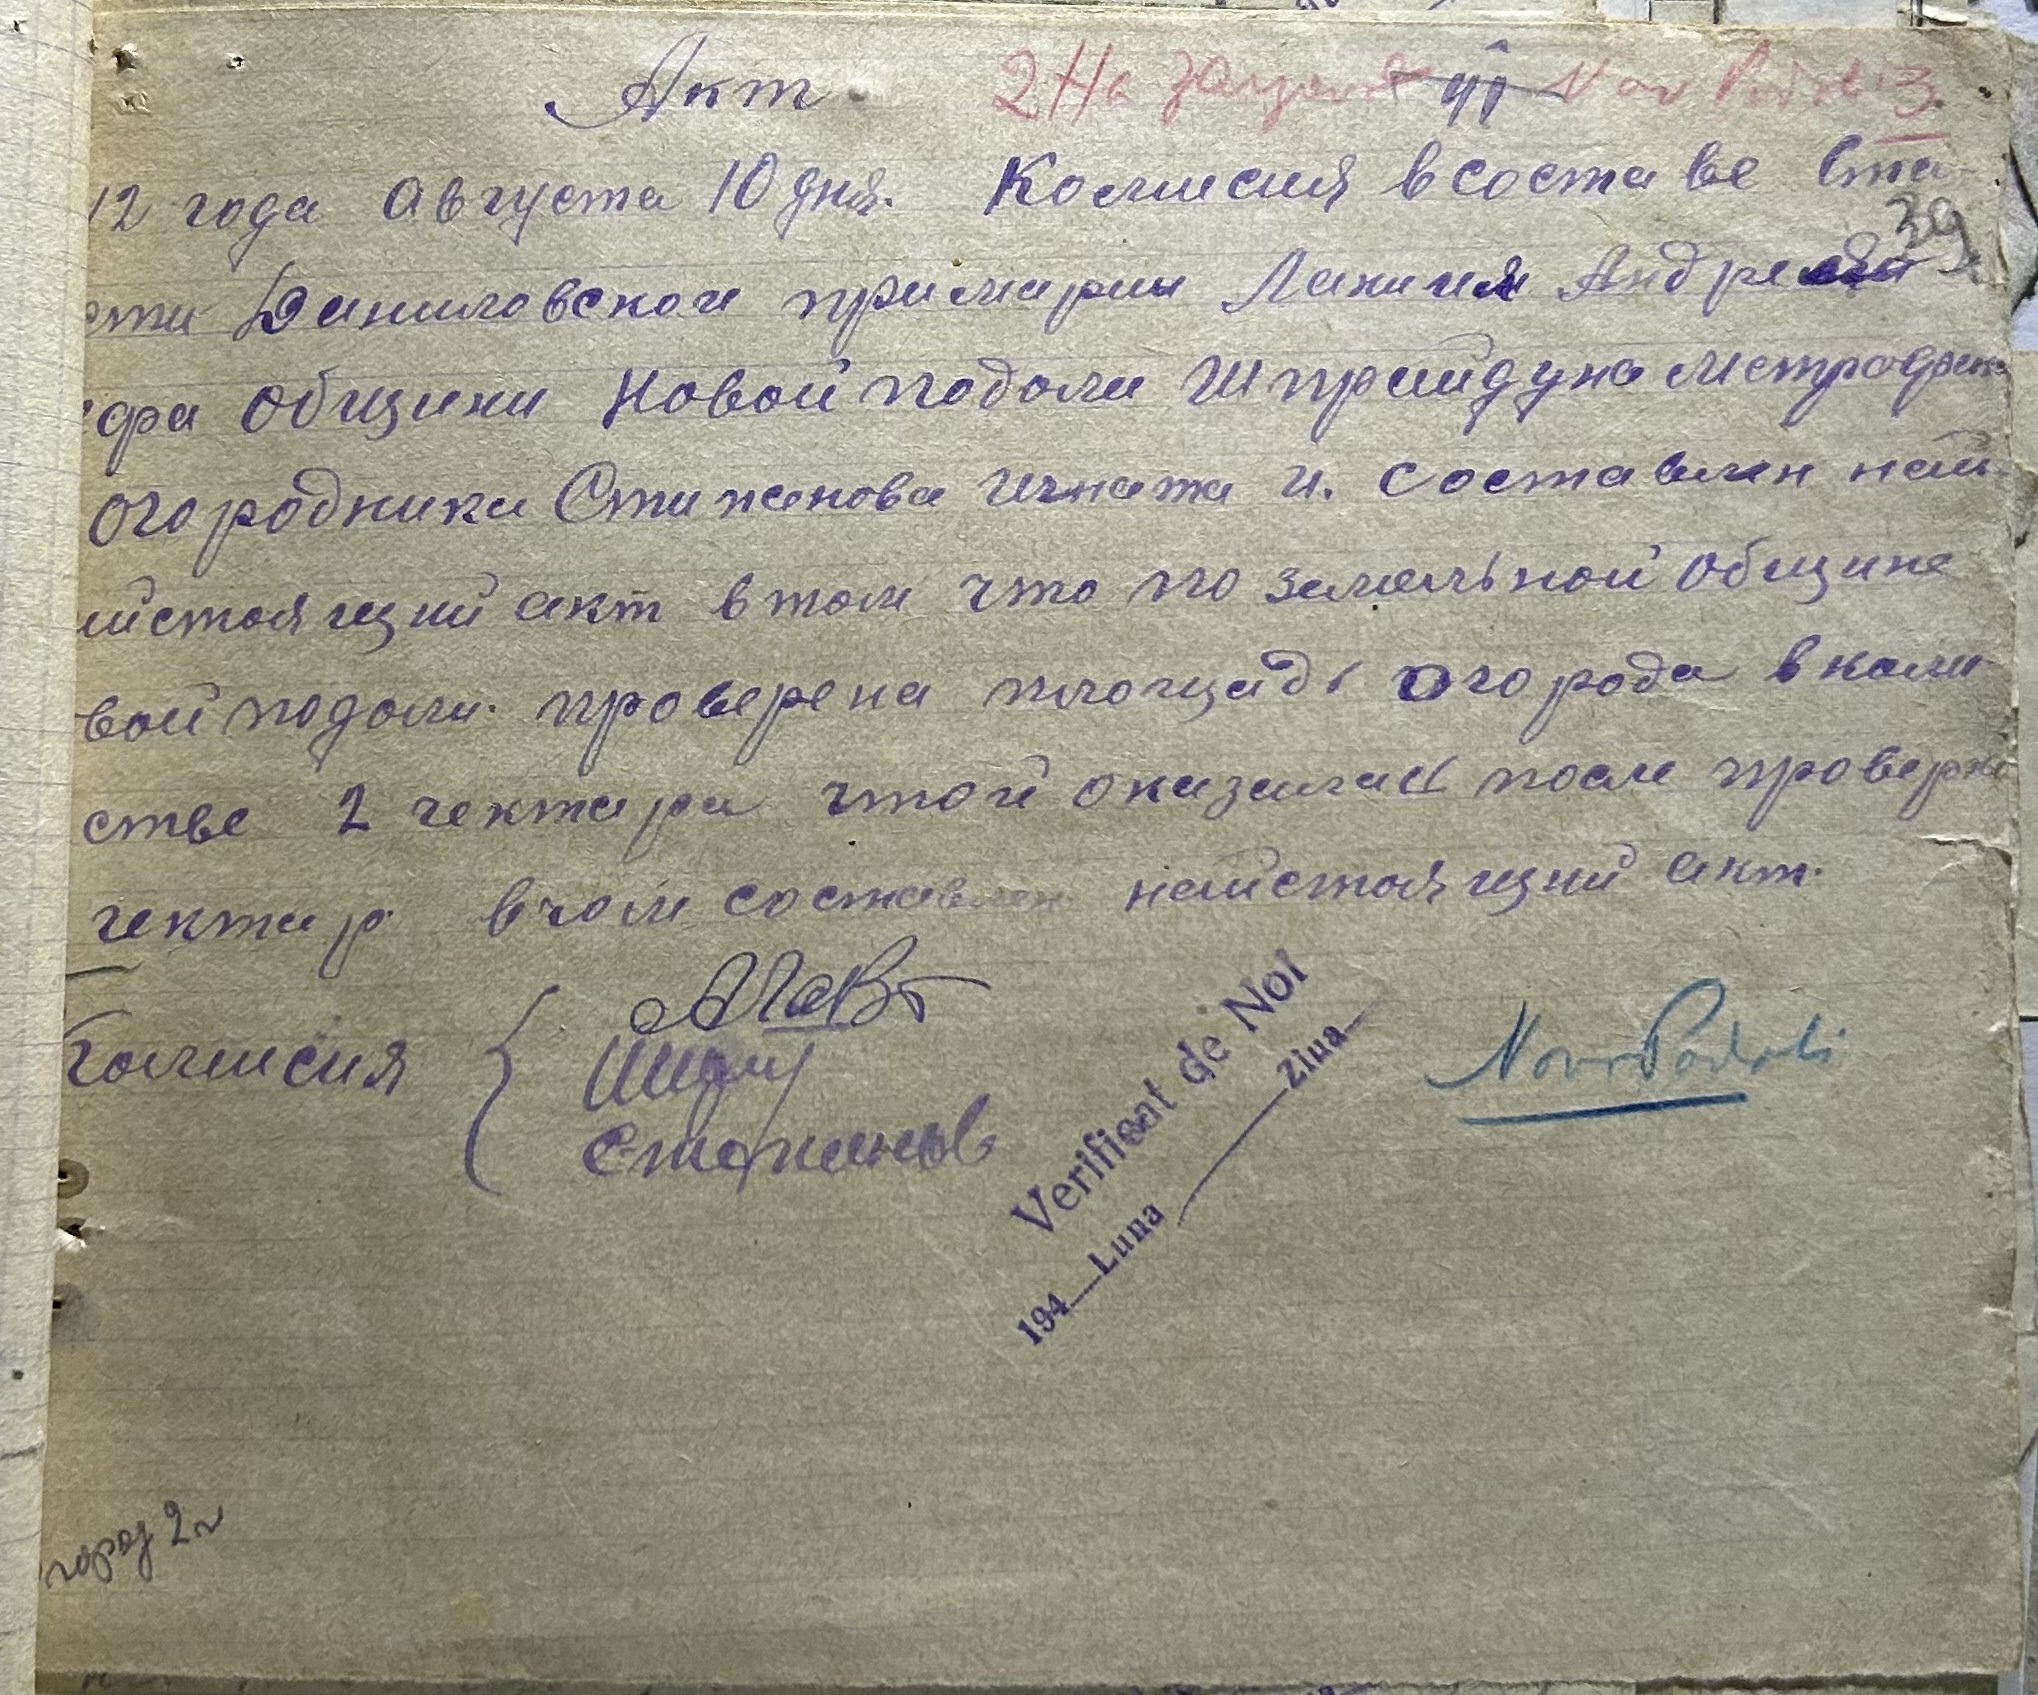 Акт
2 Ha Nov Podoli 3
12 года Августа 10 дня. Комисия в составе вта-
39
сти Даниловской примарии Ланиия Андрея
фра общини Новой подоли Шпрайдуна
огородника Стиженова Игната И. составлен най-
йстоящий акт в том что по земельной общине
вой подоли. проверена площадь огорода в коли-
стве 2 гектара чтой оказалась после проверки
гектар вчом составлен найстоящий акт.
Комисия
Verificat de Noi
194__Luna____Ziua__
Novo Podoli
город 2